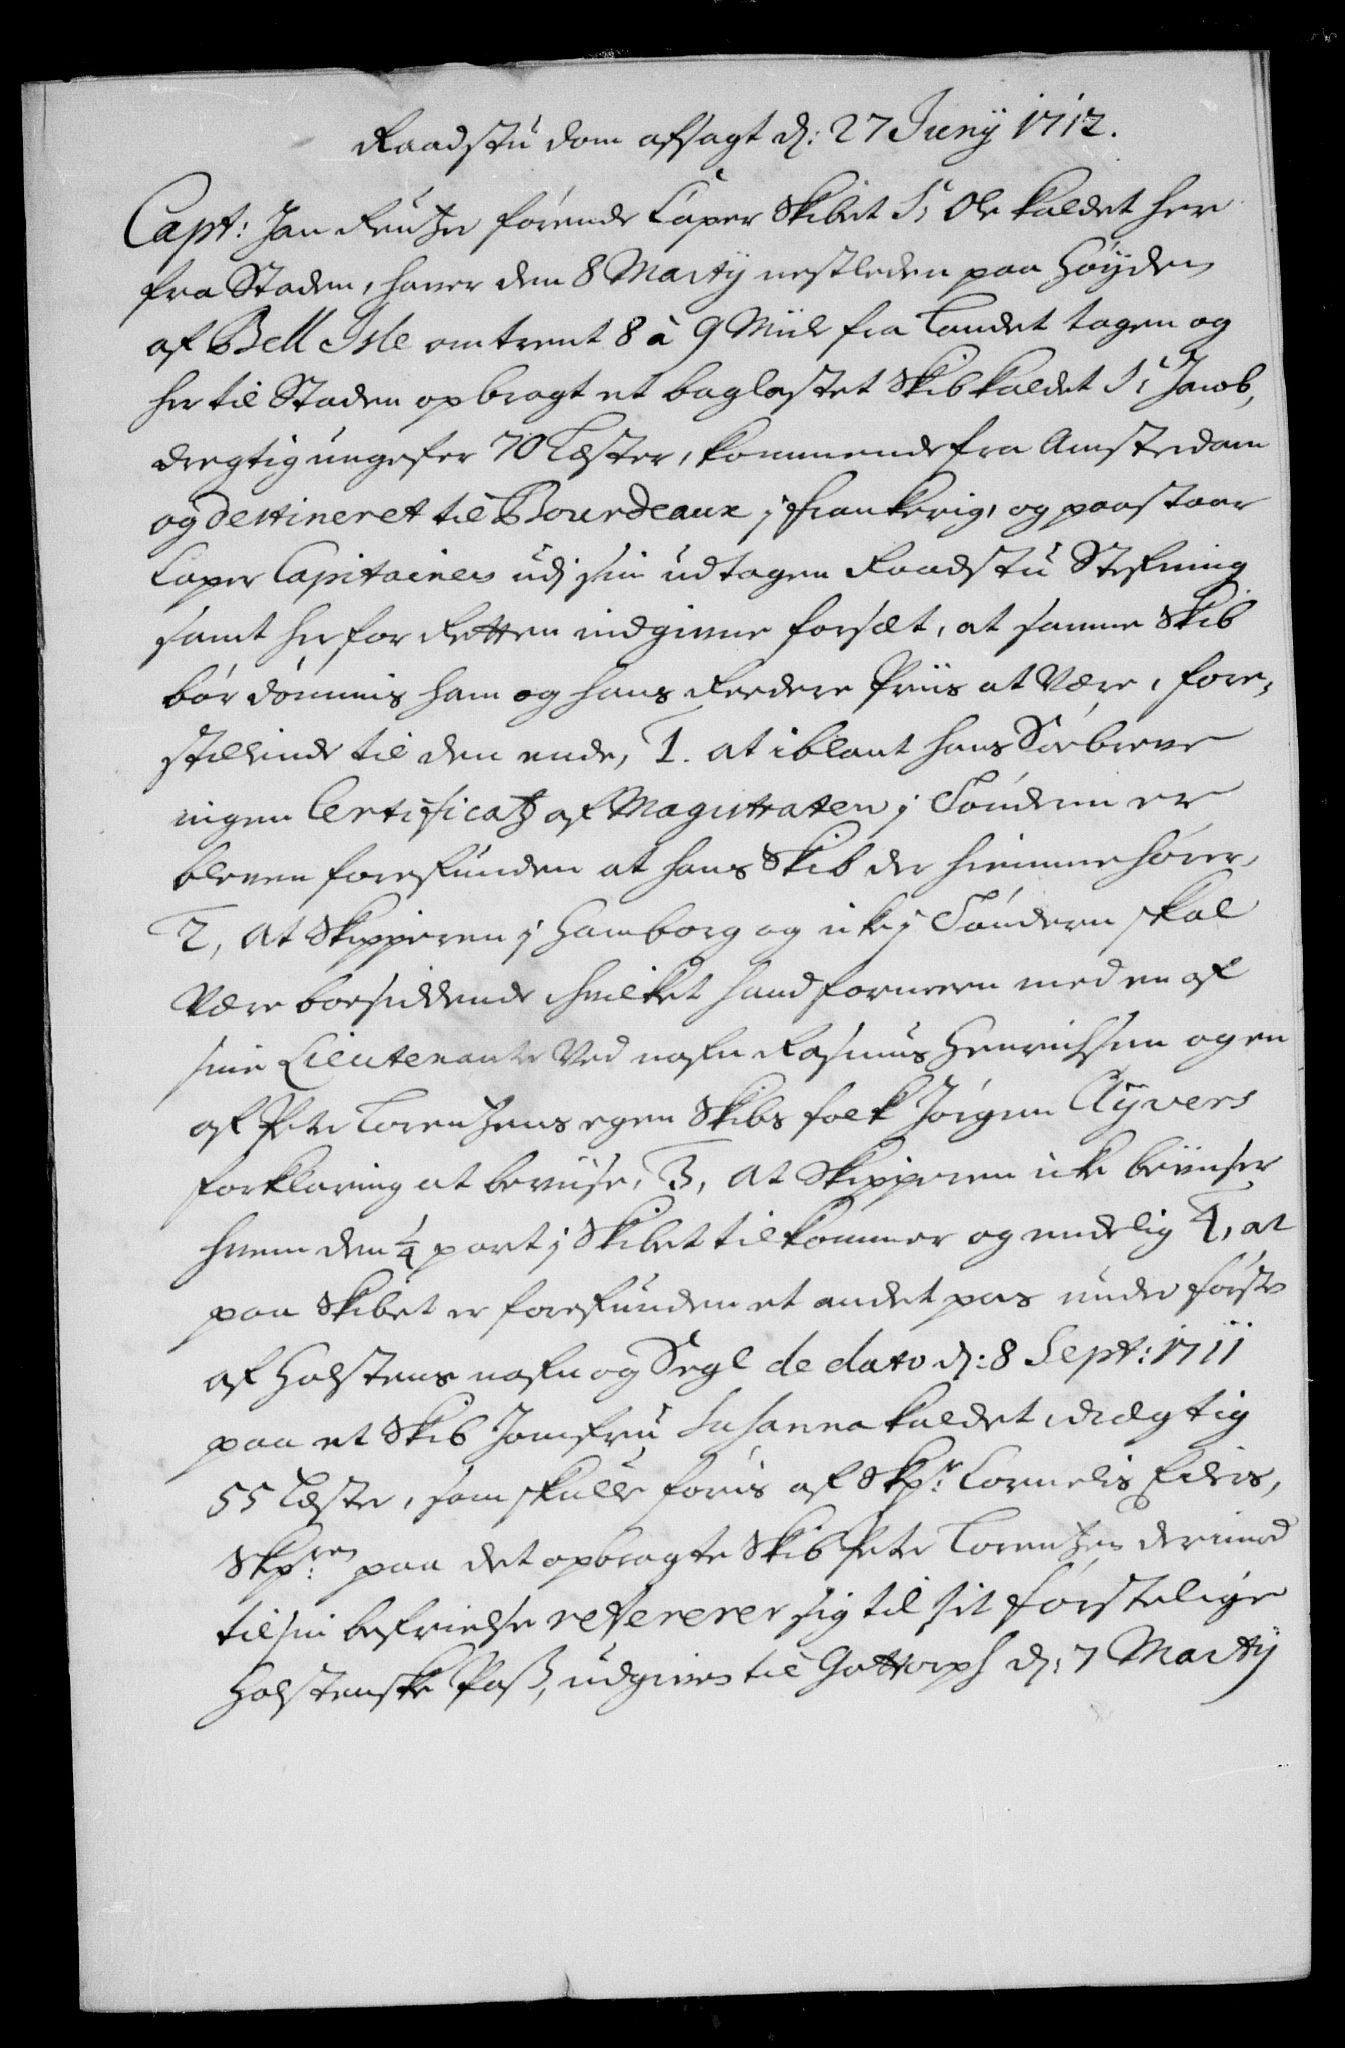 Raadstu dom afsagt d: 27 Junij 1712.
Capt: Jan Reutzer förende Caper Skibet St Ole kaldet her
fra Staden, haver dem 8 Martij nestleden paa Höyden
af Bell Isle omtrent 8 à 9 Miile fra Landet tagen og
her til Staden opbragt et baglastet Skib kaldet St Jacob,
dregtig ungefer 70 Læster, kommende fra Amsterdam
og destineret til Bourdeaux j Frankerig, og paastaar
Caper Capitainen udj sin udtagen Raadstu Stefning
samt her for Retten indgivne forsæt, at samme Skib
bör dömmis ham og hans Reedere Priis at være, fore-
stillende til den ende, 1. at iblant hans Söebreve
ingen Certificatz af Magistraten j Töndern er
bleven forefunden at hans Skib der hiemmehörer,
2, at Skipperen j Hamborg og icke j Töndern skal
Være boesiddende hvilket hand formeen med en af
sine Lieutenante Ved nafn Rasmus Henrichsen og en
af Peter Lorentzens egen Skibs folk Jörgen Clyvers
forklaring at beviise, 3, at Skipperen icke beviiser
hvem den ¼ part j Skibet tilkommer og endelig 4, at
paa Skibet er forefunden et andet pas under förste
af Holstens nafn og Segl de dato d: 8 Sept: 1711
paa et Skib Jomfru Susanna kaldet, drægtig
55 Læster, som skulle föris af Skpr: Cornelis Eilers,
Skp:ren paa det opbragte Skib Peter Lorentzen derimod
til sin befrielse refererer sig til sit förstelige
Holstenske Pass, udgiven til Gottorph d: 7 Martij